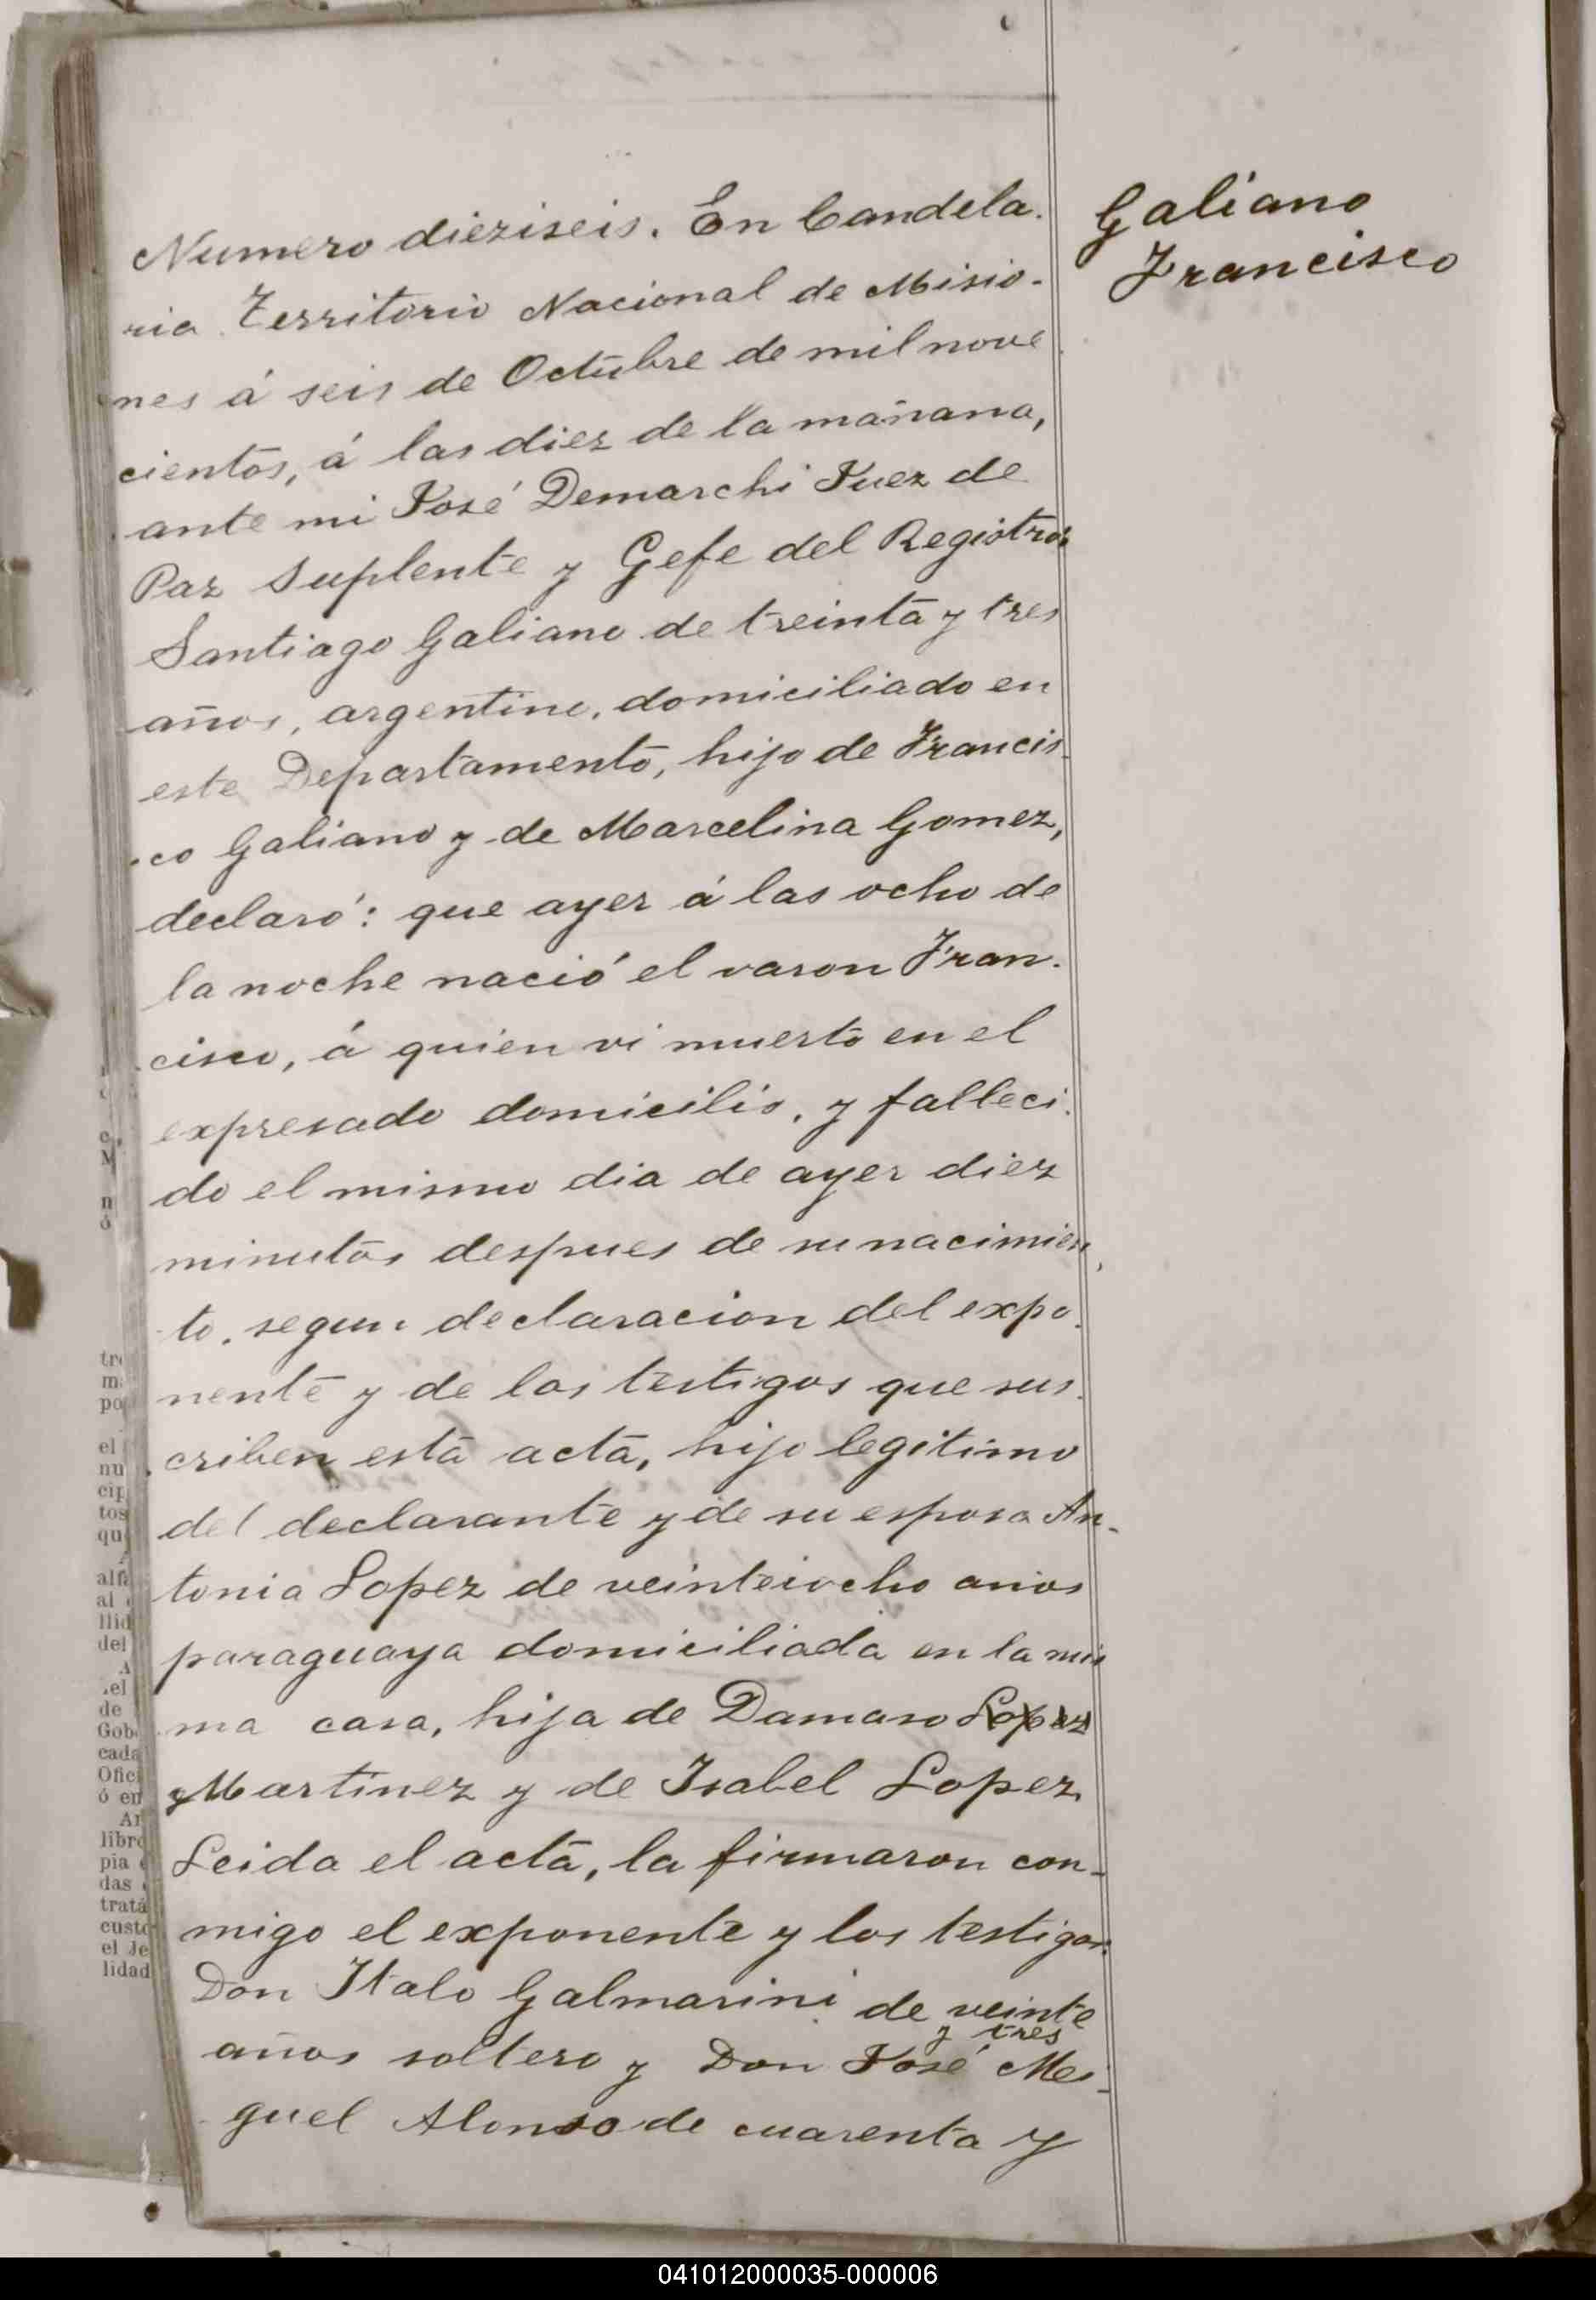 Galiano
Francisco
Numero dieziseis. En Candela.
ria Territorio Nacional de Misio-
nes á seis de Octubre de mil nove
cientos, á las diez de la mañana,
ante mi José Demarchi Juez de
Paz Suplente y Gefe del Registro,
Santiago Galiano de treinta y tres
años, argentino, domiciliado en
este Departamento, hijo de Francis-
co Galiano y de Marcelina Gomez,
declaró: que ayer á las ocho de
la noche nació el varon Fran-
cisco, á quien vi muerto en el
expresado domicilio, y falleci-
do el mismo dia de ayer diez
minutos despues de su nacimien
to, segun declaracion del expo-
nente y de los testigos que sus-
criben esta acta, hijo legitimo
del declarante y de su esposa An-
tonia Lopez de veinteiocho años
paraguaya domiciliada en la mis
ma casa, hija de Damaso Lopez
y Martinez y de Isabel Lopez
Leida el acta, la firmaron con-
migo el exponente y los testigos:
Don Italo Galmarini de veinte
y tres
años soltero y Don José Mi-
guel Alonso de cuarenta y
tr
po
el
nu
cip
tos
qu
al
llid
del
.el
de
Gob
cada
Ofici
ó en
Ar
libro
pia
das
tratá
custo
el Je
lidad
041012000035-000006